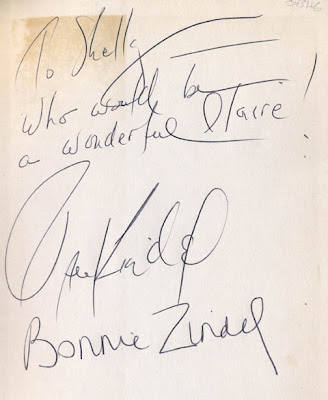 To Shelly
Who would be
a wonderful Claire!
Paul Zindel
Bonnie Zindel